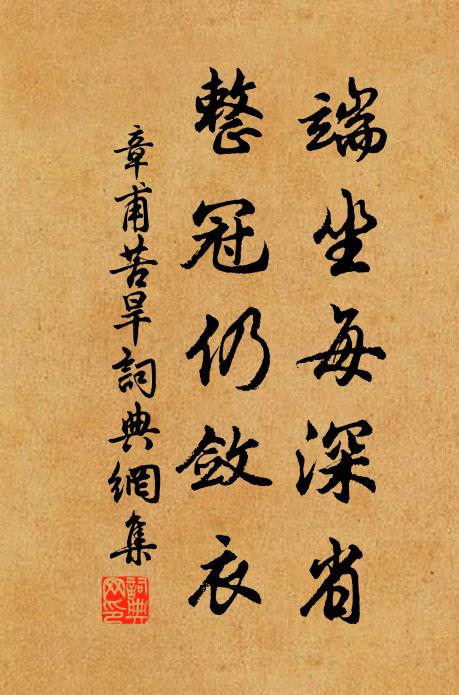 端坐每深省
整冠仍斂衣
章甫苦旱詞典網集
詞典
网印